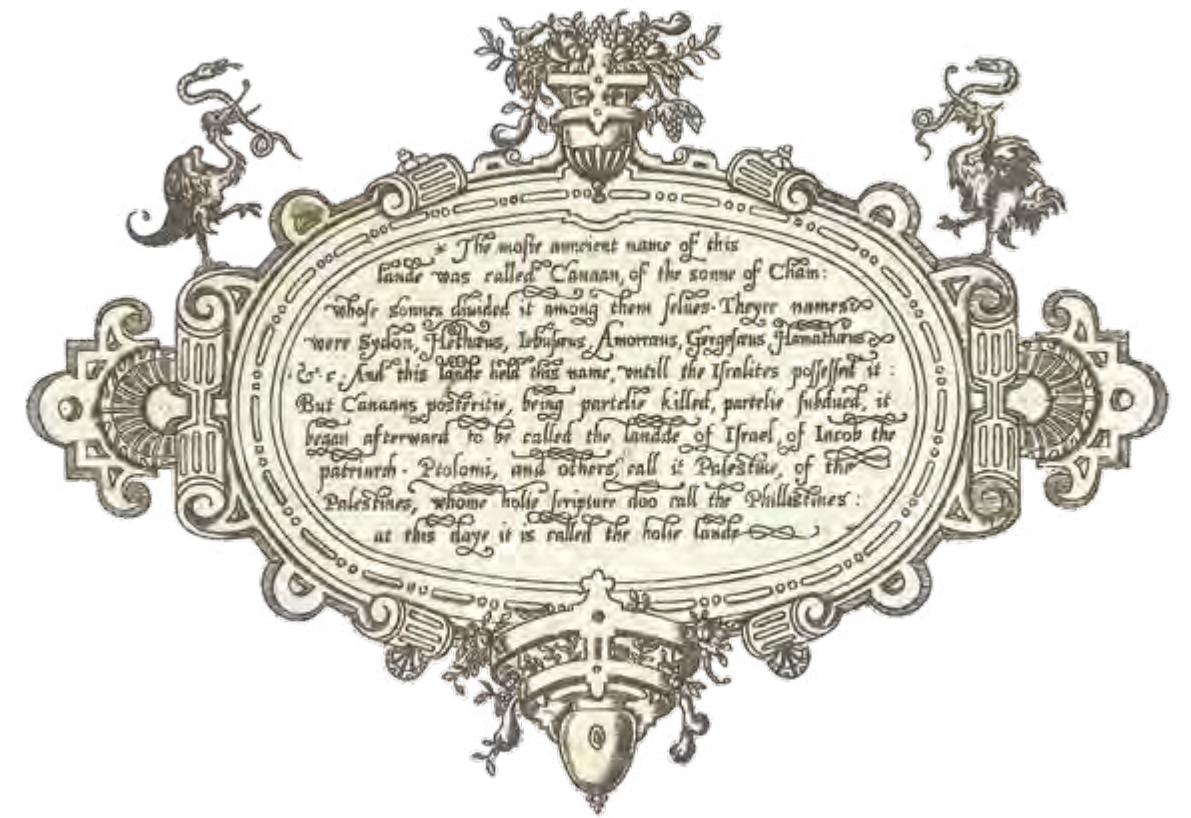 * The moste auncient name of this
lande was called Canaan, of the sonne of Cham:
whose sonnes divided it among them selues. Theyre names
were Sydon, Hethæus, Iebusæus, Amorræus, Gergesæus, Hamathæus
&c. And this lande held this name, untill the Isralites possessed it:
But Canaans posteritie, being partelie killed, partelie subdued, it
began afterward to be called the landde of Israel, of Iacob the
patriarch. Ptolomi, and others, call it Palestine, of the
Palestines, whome holie scripture doo call the Phillistines:
at this daye it is called the holie lande